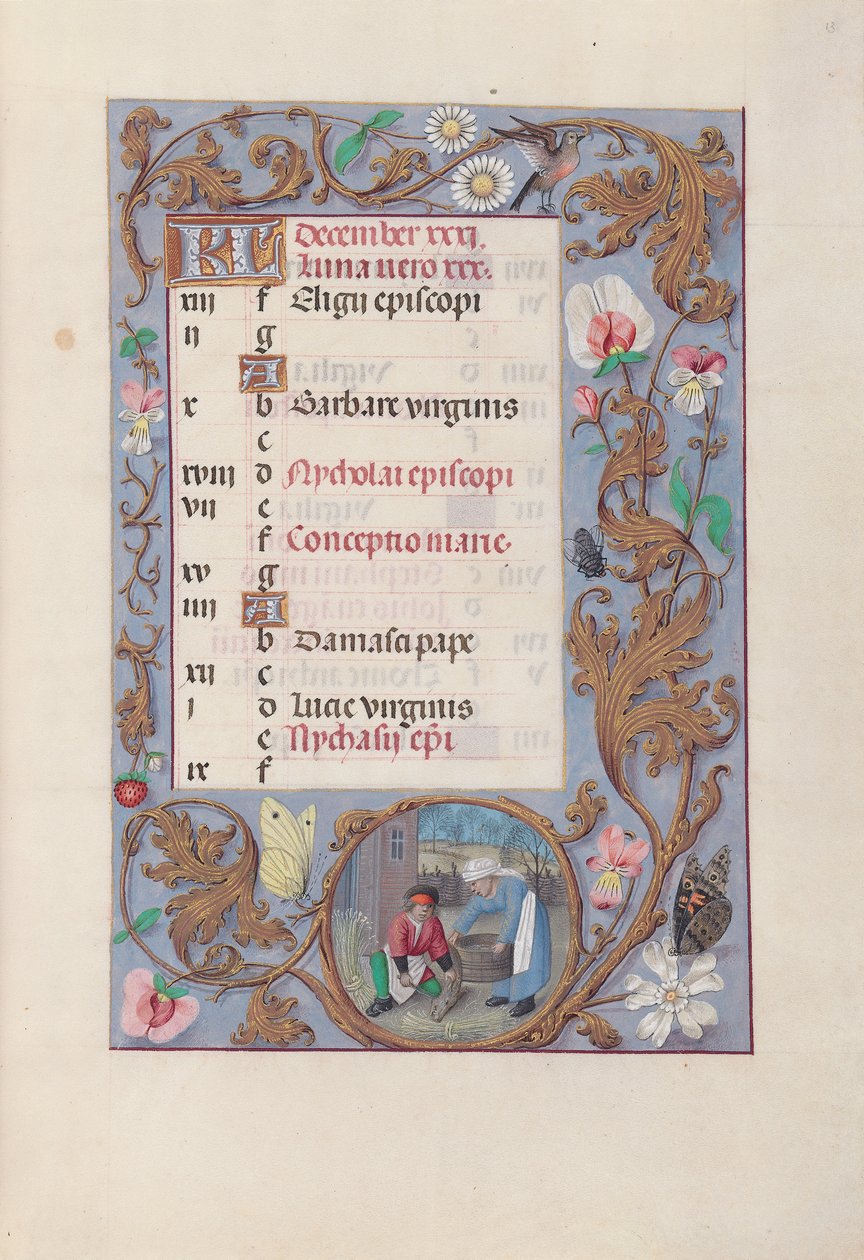 13
KL December xxxi.
Luna uero xxx.
xiii f Eligii episcopi
ii g
A
x b Barbare virginis
c
xviii d Nycholai episcopi
vii e
f Conceptio marie.
xv g
iiii A
b Damasci pape
xii c
i d Lucie virginis
e Nychasij ep̄i
ix f